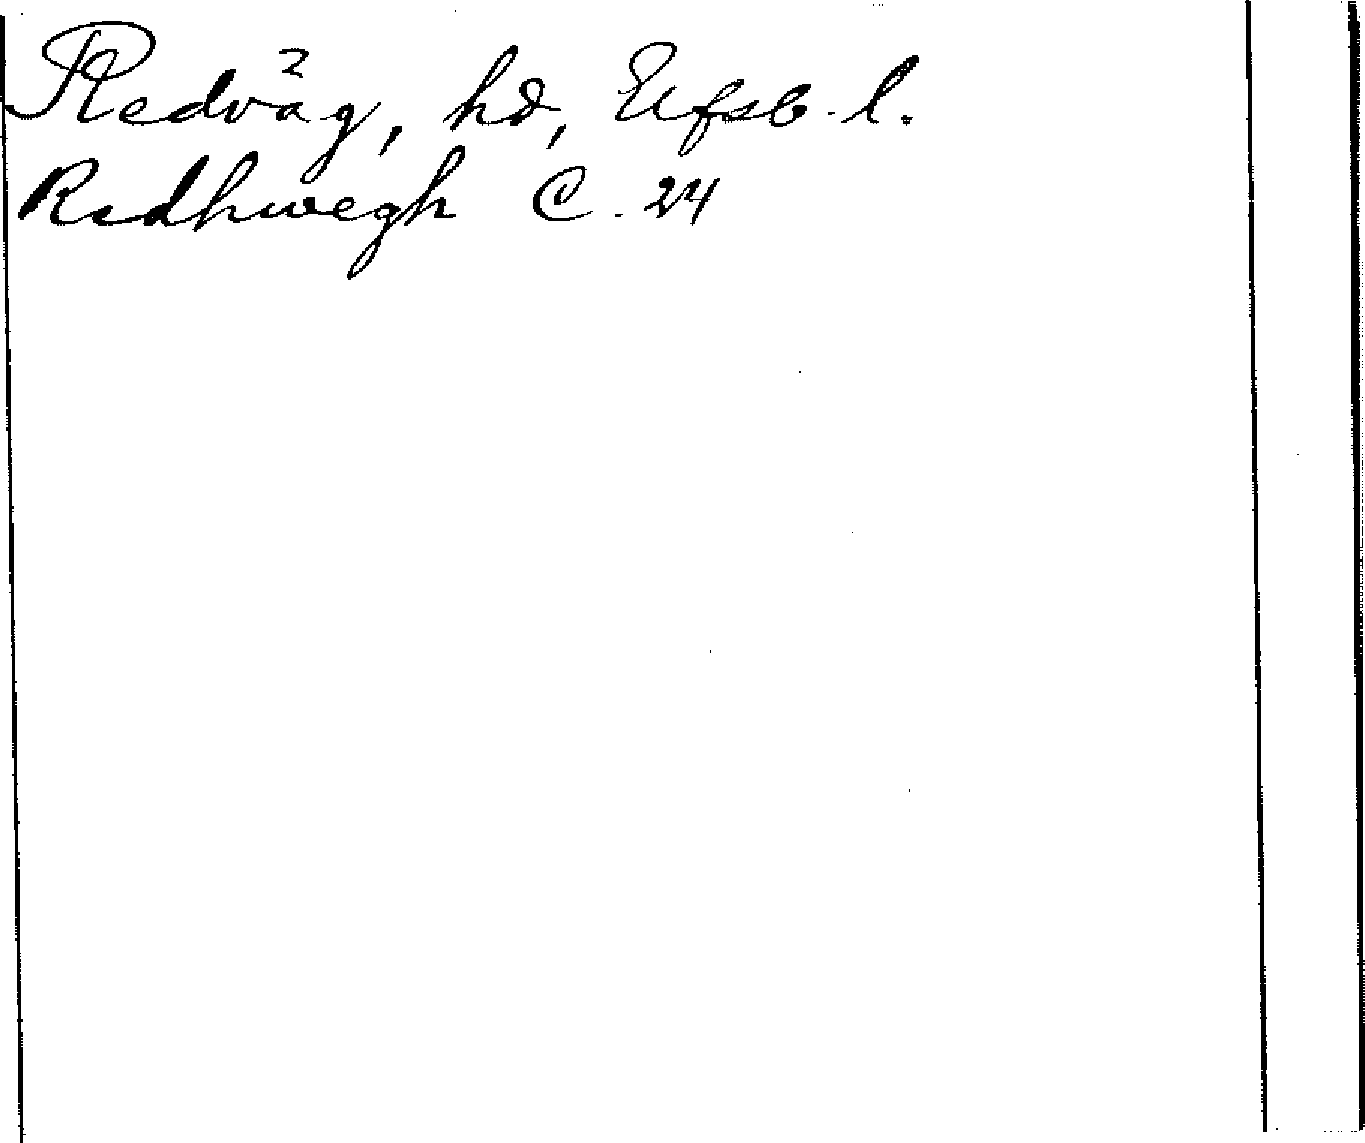 Redväg, hd, Elfsb. l.
Redhwegh C. 24